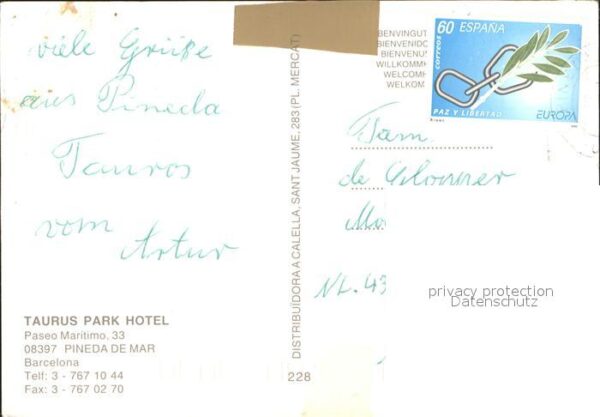 viele Grüße
aus Pineda
Tauros
vom
Artur
TAURUS PARK HOTEL
Paseo Marítimo, 33
08397 PINEDA DE MAR
Barcelona
Telf: 3 - 767 10 44
Fax: 3 - 767 02 70
DISTRIBUÏDORA A CALELLA, SANT JAUME, 283 (PL. MERCAT)
228
BENVINGUT
BIENVENIDO
BIENVENU
WILLKOMM
WELCOME
WELKOM
60 ESPAÑA
correos
PAZ Y LIBERTAD
EUROPA
Fam
de
NL. 43
privacy protection
Datenschutz